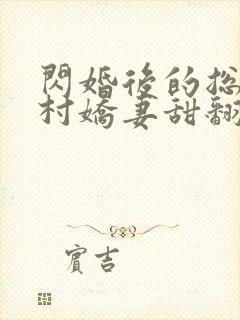 閃婚後的总
村嬌妻甜翻
賓吉